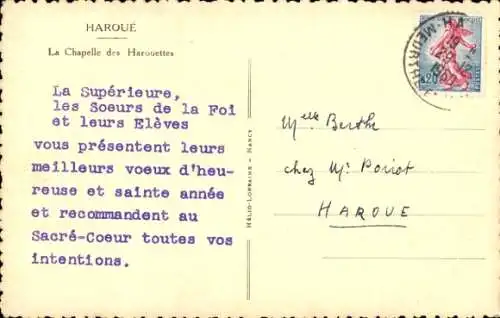 HAROUÉ
La Chapelle des Harouettes
La Supérieure,
les Soeurs de la Foi
et leurs Elèves
vous présentent leurs
meilleurs voeux d'heu-
reuse et sainte année
et recommandent au
Sacré-Coeur toutes vos
intentions.
HÉLIO-LORRAINE - NANCY
0,20
Melle Berthe
chez Mr Poirot
HAROUE